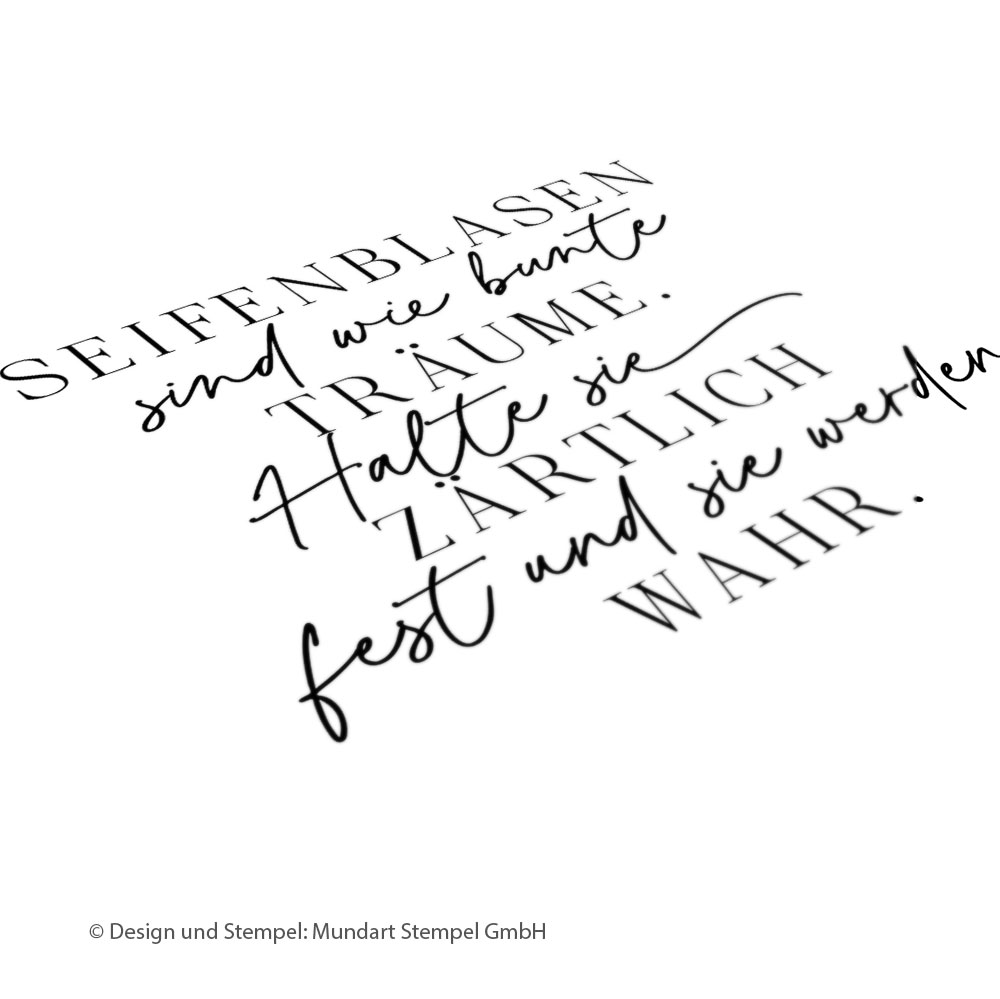 SEIFENBLASEN
sind wie bunte
TRÄUME.
Halte sie
ZÄRTLICH
fest und sie werden
WAHR.
© Design und Stempel: Mundart Stempel GmbH